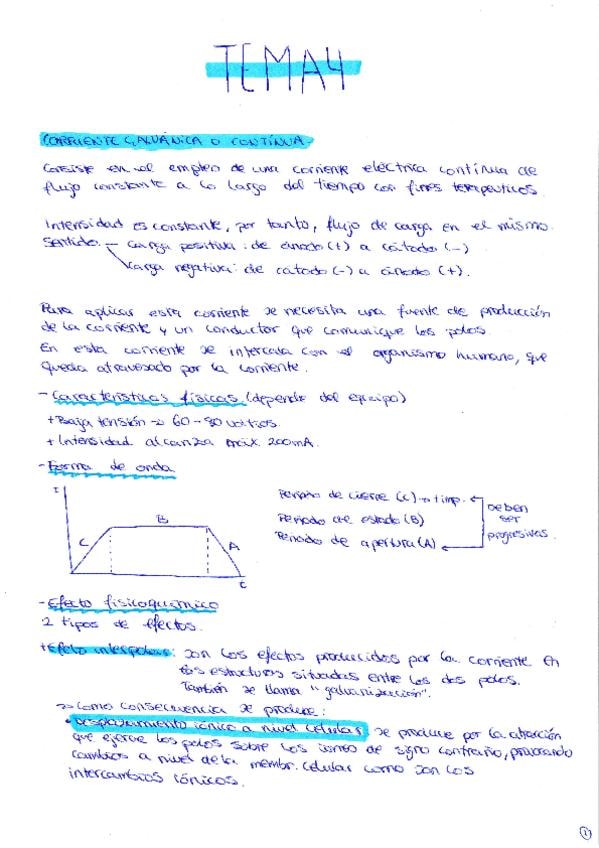 TEMA 4
CORRIENTE GALVÁNICA O CONTÍNUA.
Consiste en el empleo de una corriente eléctrica contínua de
flujo constante a lo largo del tiempo con fines terapeuticos.
Intensidad es constante, por tanto, flujo de carga en el mismo.
Sentido. — carga positiva: de ánodo (+) a cátodo (-)
carga negativa: de cátodo (-) a ánodo (+).
Para aplicar esta corriente se necesita una fuente de producción
de la corriente y un conductor que comunique los polos.
En esta corriente se intercala con el organismo humano, que
queda atravesado por la corriente.
- Características físicas (depende del equipo)
+ Baja tensión → 60-80 voltios.
+ Intensidad alcanza máx. 200mA.
- Forma de onda
I
Periodo de cierre (C) → timp.
Deben
B
Periodo de estado (B)
ser
C
A
Periodo de apertura (A)
progresivas.
t
- Efecto fisicoquímico
2 tipos de efectos.
+ Efecto interpolar: son los efectos producidos por la corriente en
las estructuras situadas entre los dos polos.
También se llama "galvanización".
→ Como consecuencia se produce:
• Desplazamiento iónico a nivel celular se produce por la atracción
que ejerce los polos sobre los iones de signo contrario, provocando
cambios a nivel de la membr. celular como son los
intercambios iónicos.
1